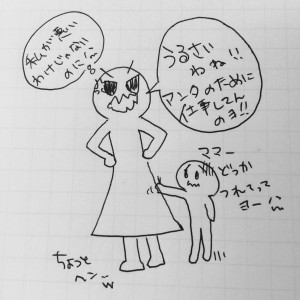 私が悪い
わけじゃない
のに〜
うるさい
わね!!
アンタのために
仕事してん
のヨ!!
ママー
どっか
つれてって
ヨー
ちょっと
ヘンー